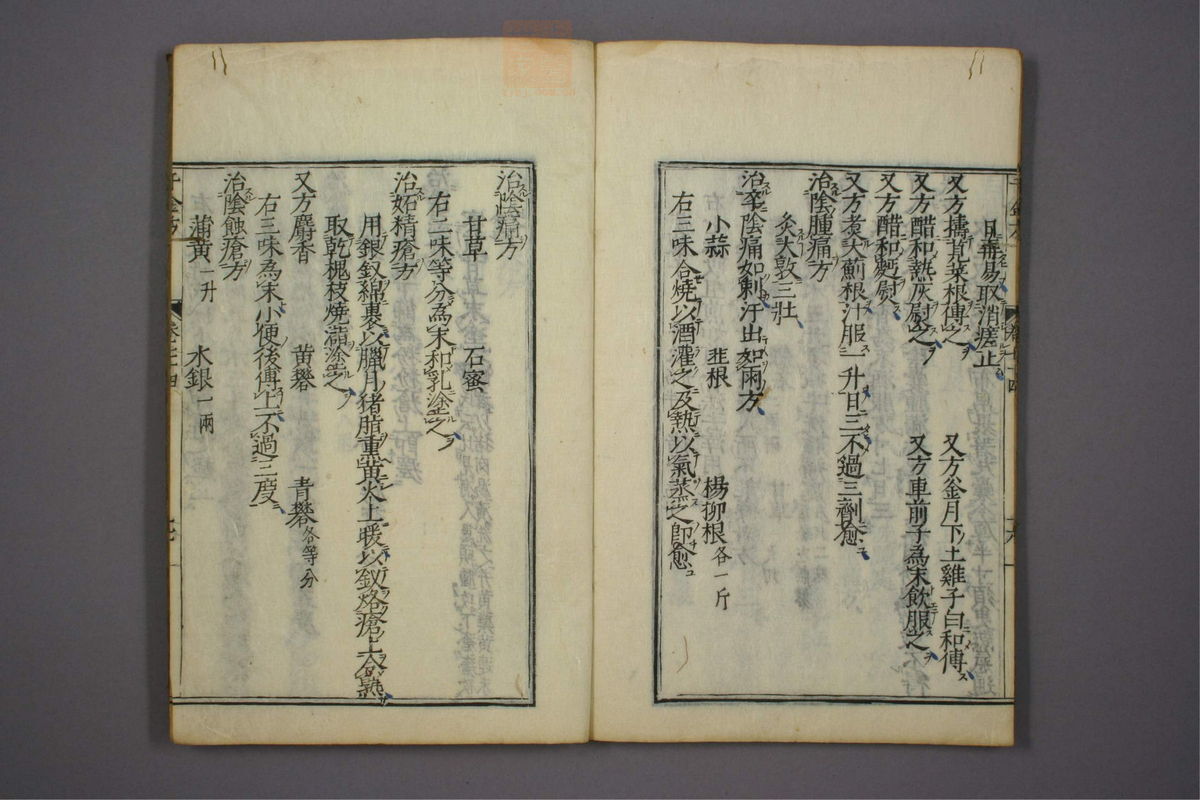 日再易取消瘥止
又方擣莧菜根傅之　又方釜月下土雞子白和傅
又方醋和熱灰熨之　又方車前子為末飲服之
又方醋和麪熨
又方煮大薊根汁服一升日三不過三劑愈
治陰腫痛方
灸大敦三壯
治卒陰痛如刺汗出如雨方
小蒜　韭根　楊柳根各一斤
右三味合燒以酒灌之及熱以氣蒸之即愈
治陰痛方
甘草　石蜜
右二味等分為末和乳塗之
治妬精瘡方
用銀釵綿裹以臘月猪脂熏黄火上暖以釵烙瘡上令熟
取乾槐枝燒塗之
又方麝香　黄礬　青礬各等分
右三味為末小便後傅上不過三度
治陰蝕瘡方
蒲黄一升　水銀一兩